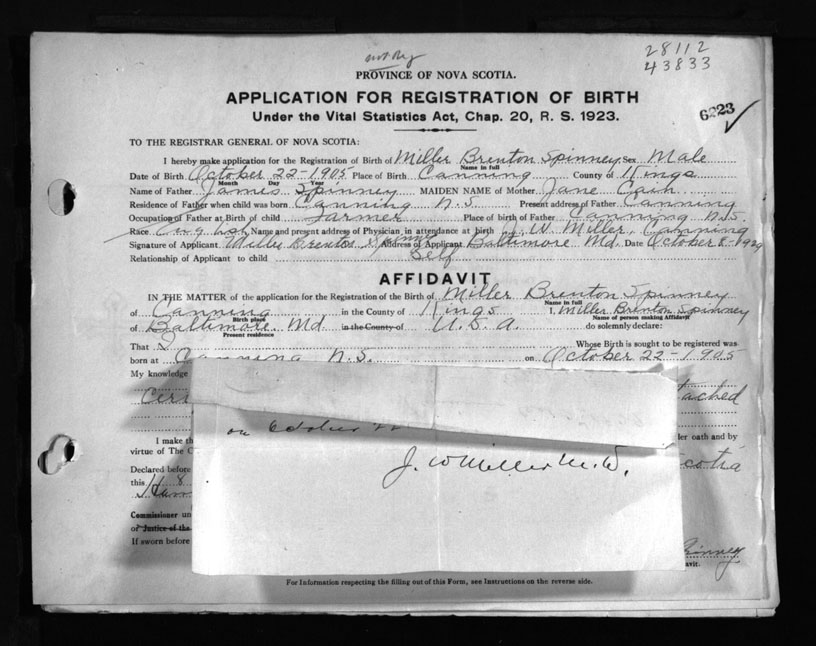 28112
43833
PROVINCE OF NOVA SCOTIA.
APPLICATION FOR REGISTRATION OF BIRTH
6223
Under the Vital Statistics Act, Chap. 20, R. S. 1923.
TO THE REGISTRAR GENERAL OF NOVA SCOTIA:
I hereby make application for the Registration of Birth of Miller Brenton Spinney Sex Male
Name in full
Date of Birth October 22-1905 Place of Birth Canning County of Kings
Month Day Year
Name of Father James Spinney MAIDEN NAME of Mother Jane Cain
Residence of Father when child was born Canning N.S Present address of Father Canning
Occupation of Father at Birth of child Farmer Place of birth of Father Canning N.S.
Race English Name and present address of Physician, in attendance at birth J. W. Miller, Canning
Signature of Applicant Brenton Spinney Address of Applicant Baltimore Md. Date October 8-1929
Relationship of Applicant to child Self
AFFIDAVIT
IN THE MATTER of the application for the Registration of the Birth of Miller Brenton Spinney
Name in full
of Canning in the County of Kings I, Miller Brenton Spinney
Birth place Name of person making Affidavit
of Baltimore. Md in the County of U.S.A. do solemnly declare:
Present residence
That I Whose Birth is sought to be registered was
born at Canning N.S. on October 22-1905
My knowledge
Cer tached
on October 22
I make th der oath and by
virtue of The C cotia
J. W Miller M.D.
Declared before
this 8
Commissioner un
or Justice of the
If sworn before pinney
avit.
For Information respecting the filling out of this Form, see Instructions on the reverse side.